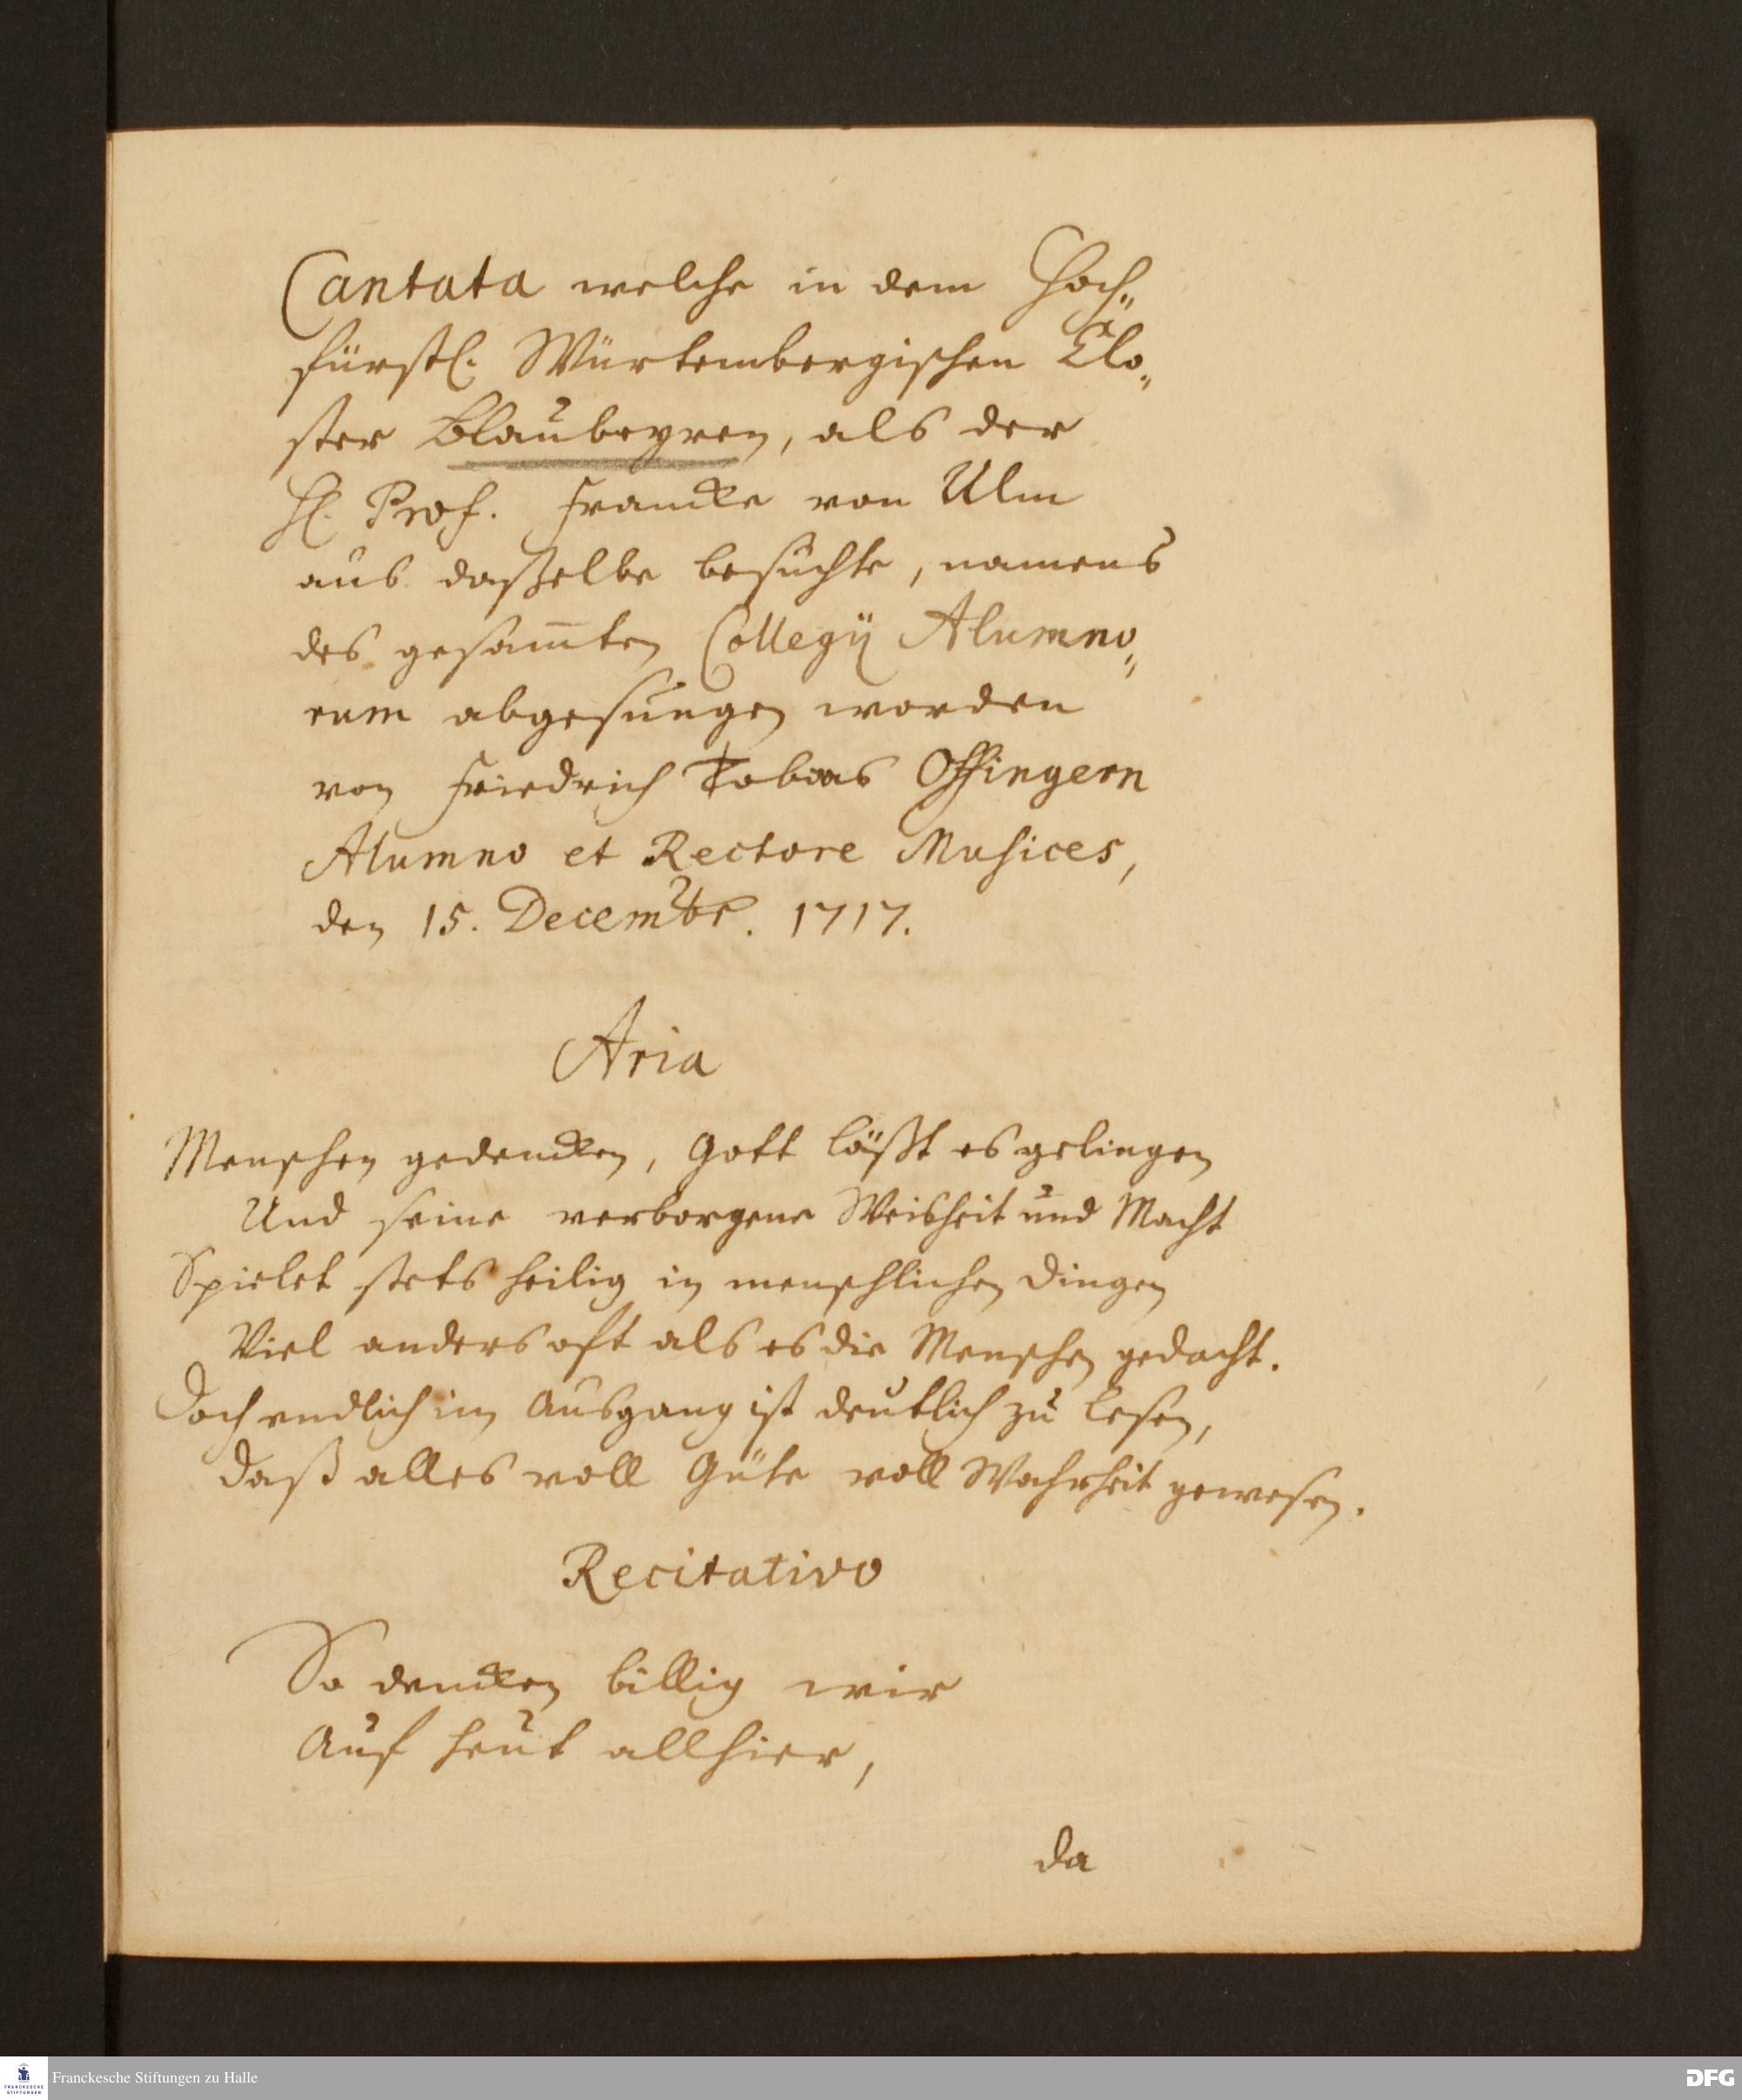 Cantata welche in dem Hoch„
fürstl. Würtembergischen Clo„
ster Blaubeyren, als der
H. Prof. Francke von Ulm
aus daßelbe besuchte, namens
des gesam̅ten Collegij Alumno„
rum abgesungen worden
von Friedrich Tobias Offingern
Alumno et Rectore Musices,
den 15. Decembr. 1717.
Aria
Menschen gedencken, Gott läßt es gelingen
Und seine verborgene Weisheit und Macht
Spielet stets heilig in menschlichen Dingen
Viel anders oft als es die Menschen gedacht.
Doch endlich im Ausgang ist deutlich zu lesen,
Daß alles voll Güte voll Wahrheit gewesen.
Recitativo
So dencken billig wir
Auf heut allhier,
da
FRANCKESCHE
STIFTUNGEN
Franckesche Stiftungen zu Halle
DFG